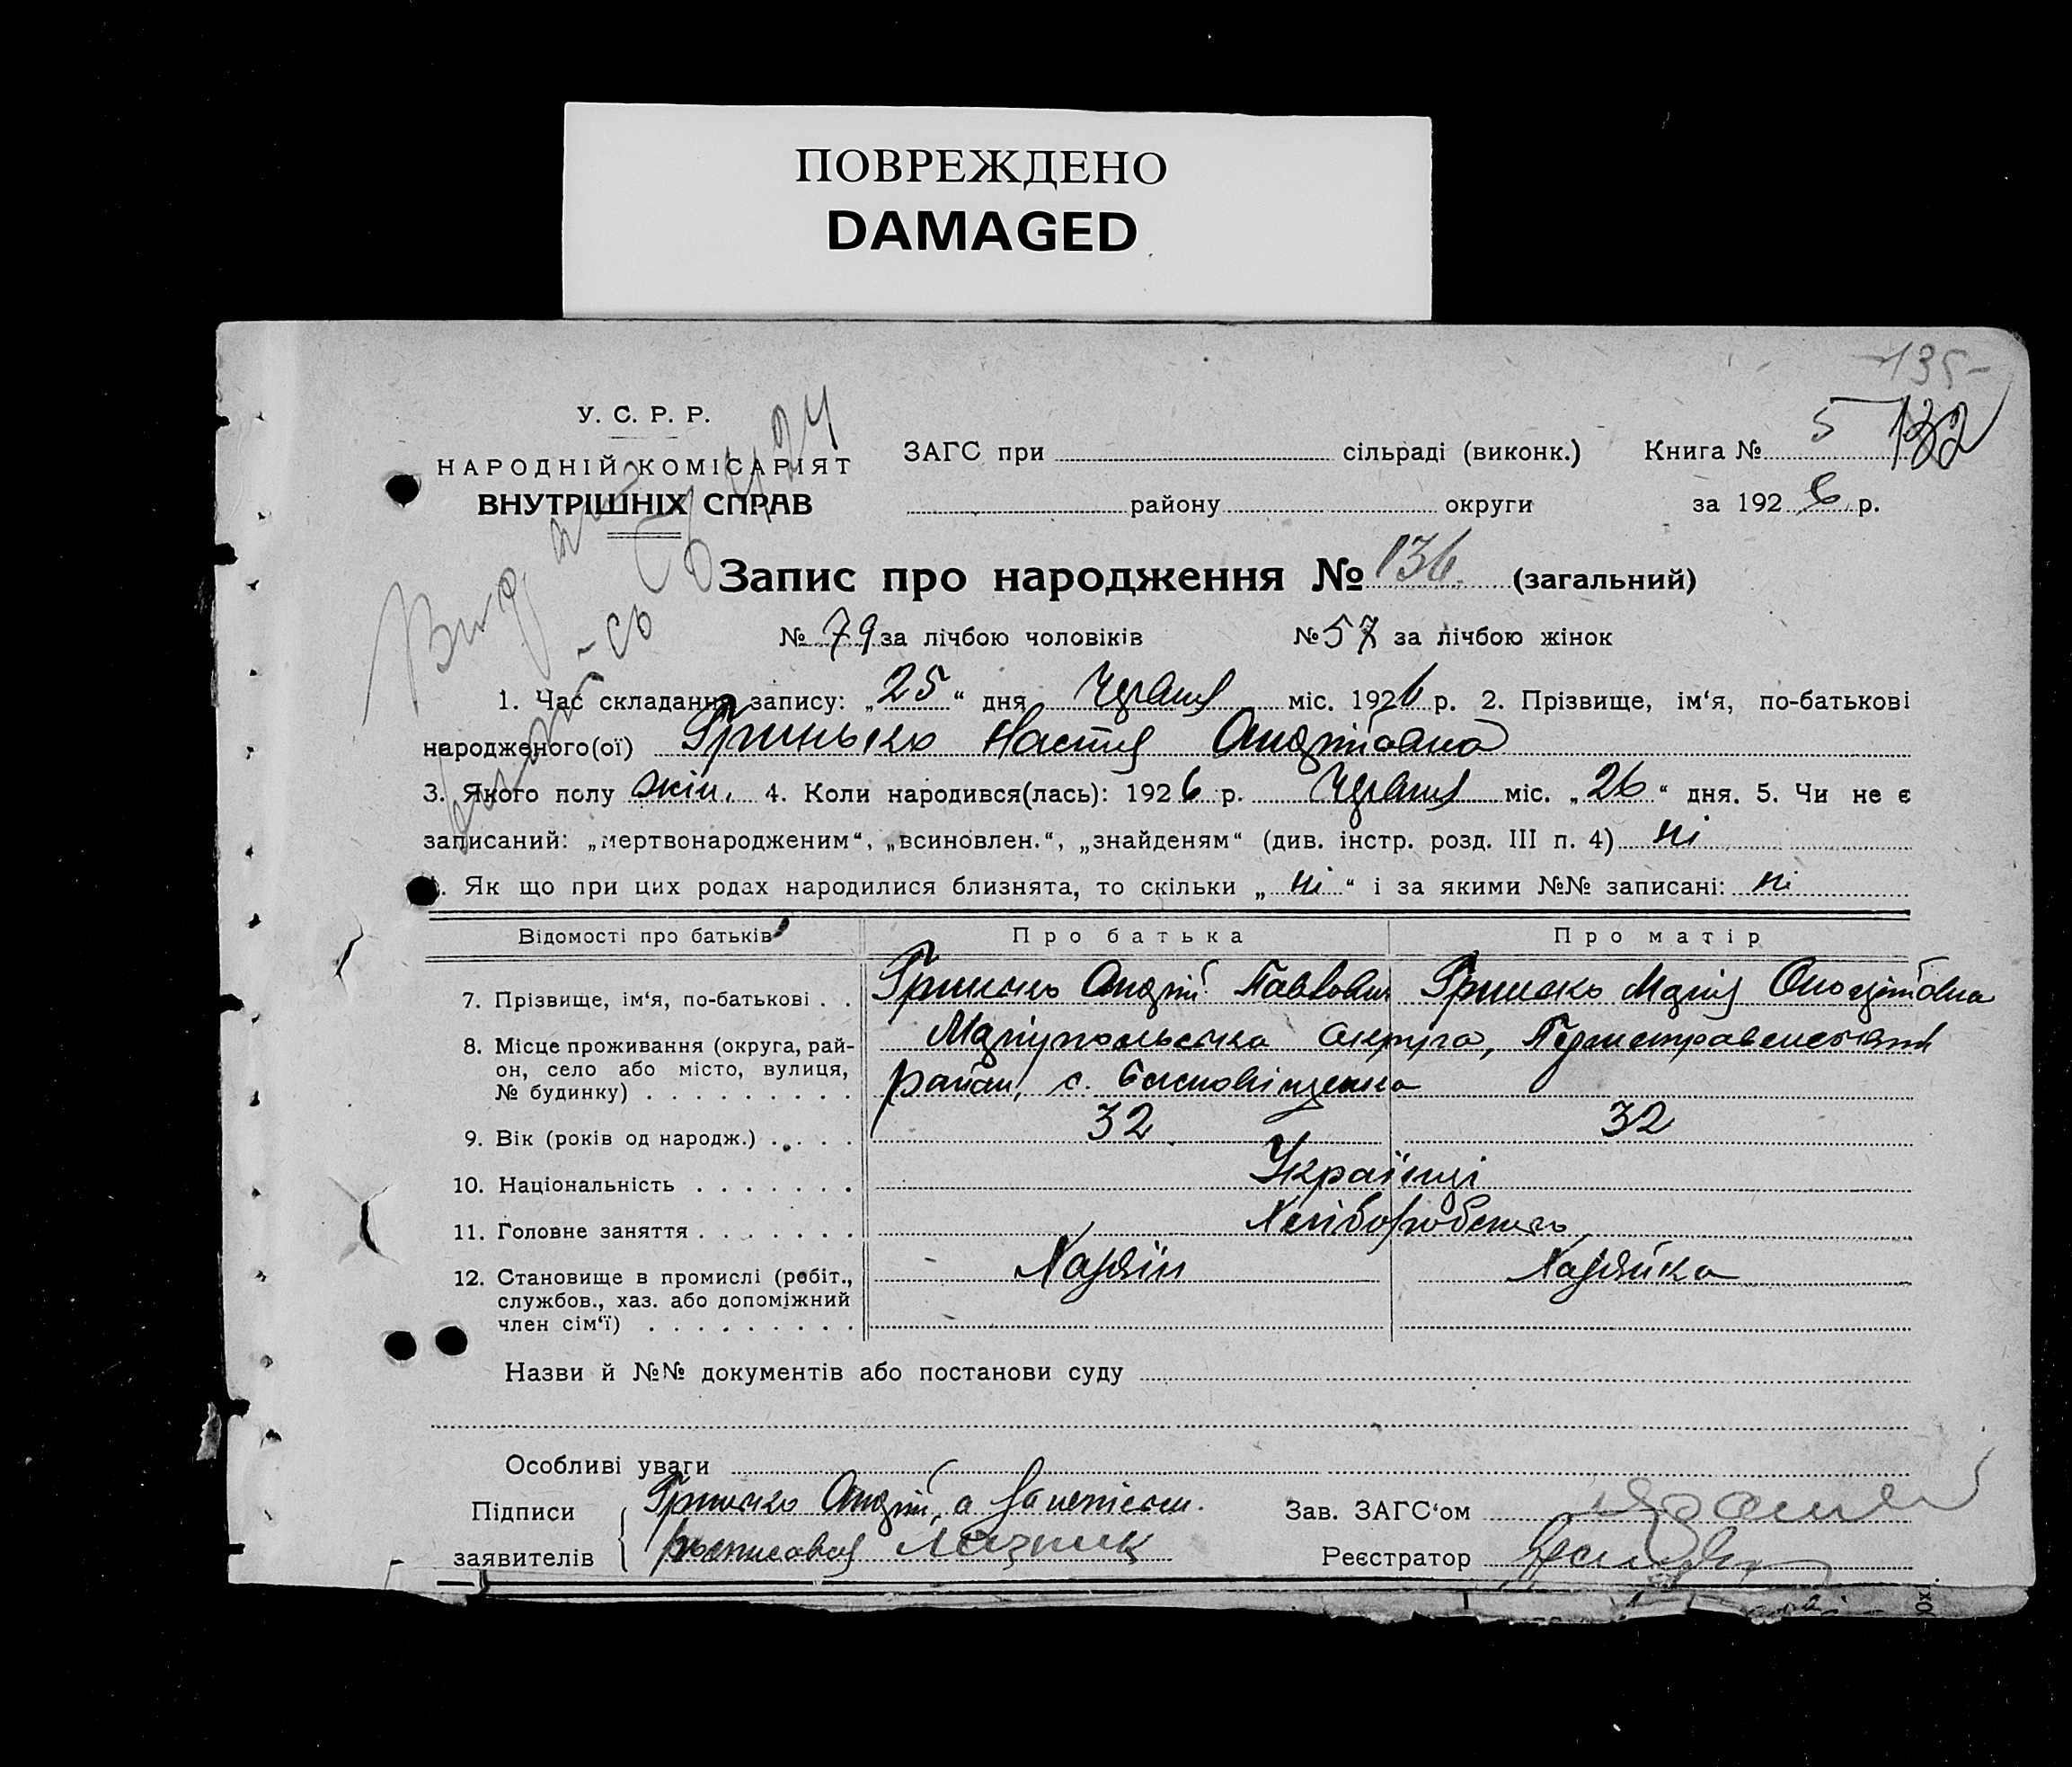 ПОВРЕЖДЕНО
DAMAGED
-135-
У. С. Р. Р.
НАРОДНІЙ КОМІСАРІЯТ
ВНУТРІШНІХ СПРАВ
ЗАГС при сільраді (виконк.) Книга № 5 132
району округи за 1926 р.
Запис про народження № 136. (загальний)
№ 79 за лічбою чоловіків № 57 за лічбою жінок
1. Час складання запису: „25“ дня Червня міс. 1926 р. 2. Прізвище, ім‘я, по-батькові
народженого(ої) Гринько Настя Андріївна
3. Якого полу жін. 4. Коли народився(лась): 1926 р. Червня міс. „26“ дня. 5. Чи не є
записаний: „мертвонародженим“, „всиновлен.“, „знайденям“ (див. інстр. розд. III п. 4) ні
. Як що при цих родах народилися близнята, то скільки „ні“ і за якими №№ записані: ні
Відомості про батьків Про батька Про матір
7. Прізвище, ім‘я, по-батькові . . Гринько Андрій Павлович Гринько Марія
8. Місце проживання (округа, рай- Маріупольська округа,
он, село або місто, вулиця, район, с. Благовіщенка
№ будинку) . . . . . . . . .
9. Вік (років од народж.) . . . . 32 32
10. Національність . . . . . . . Українці
11. Головне заняття . . . . . . . Хліборобство
12. Становище в промислі (робіт., Хазяїн Хазяйка
службов., хаз. або допоміжний
член сім‘ї) . . . . . . . . .
Назви й №№ документів або постанови суду
Особливі уваги
Підписи Гринько Андрій, а Зав. ЗАГС‘ом
заявителів Реєстратор